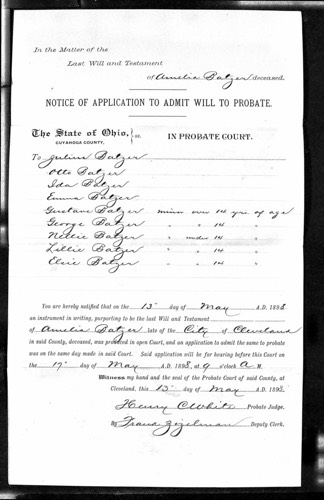 In the Matter of the
Last Will and Testament
of Amelia Batzer deceased.
NOTICE OF APPLICATION TO ADMIT WILL TO PROBATE.
The State of Ohio, } ss.
CUYAHOGA COUNTY,
IN PROBATE COURT.
To Julius Batzer
Otto Batzer
Ida Batzer
Emma Batzer
Gustave Batzer minor over 14 yrs of age
George Batzer " " 14 "
Nettie Batzer " under 14 "
Lillie Batzer " " 14 "
Elsie Batzer " " 14 "
You are hereby notified that on the 13" day of May A.D. 1898
an instrument in writing, purporting to be the last Will and Testament
of Amelia Batzer late of the City of Cleveland
in said County, deceased, was produced in open Court, and an application to admit the same to probate
was on the same day made in said Court. Said application will be for hearing before this Court on
the 17" day of May A.D. 1898, at 9 o'clock A M.
Witness my hand and the seal of the Probate Court of said County, at
Cleveland, this 13" day of May A.D. 1898.
Henry C White Probate Judge.
By Deputy Clerk.